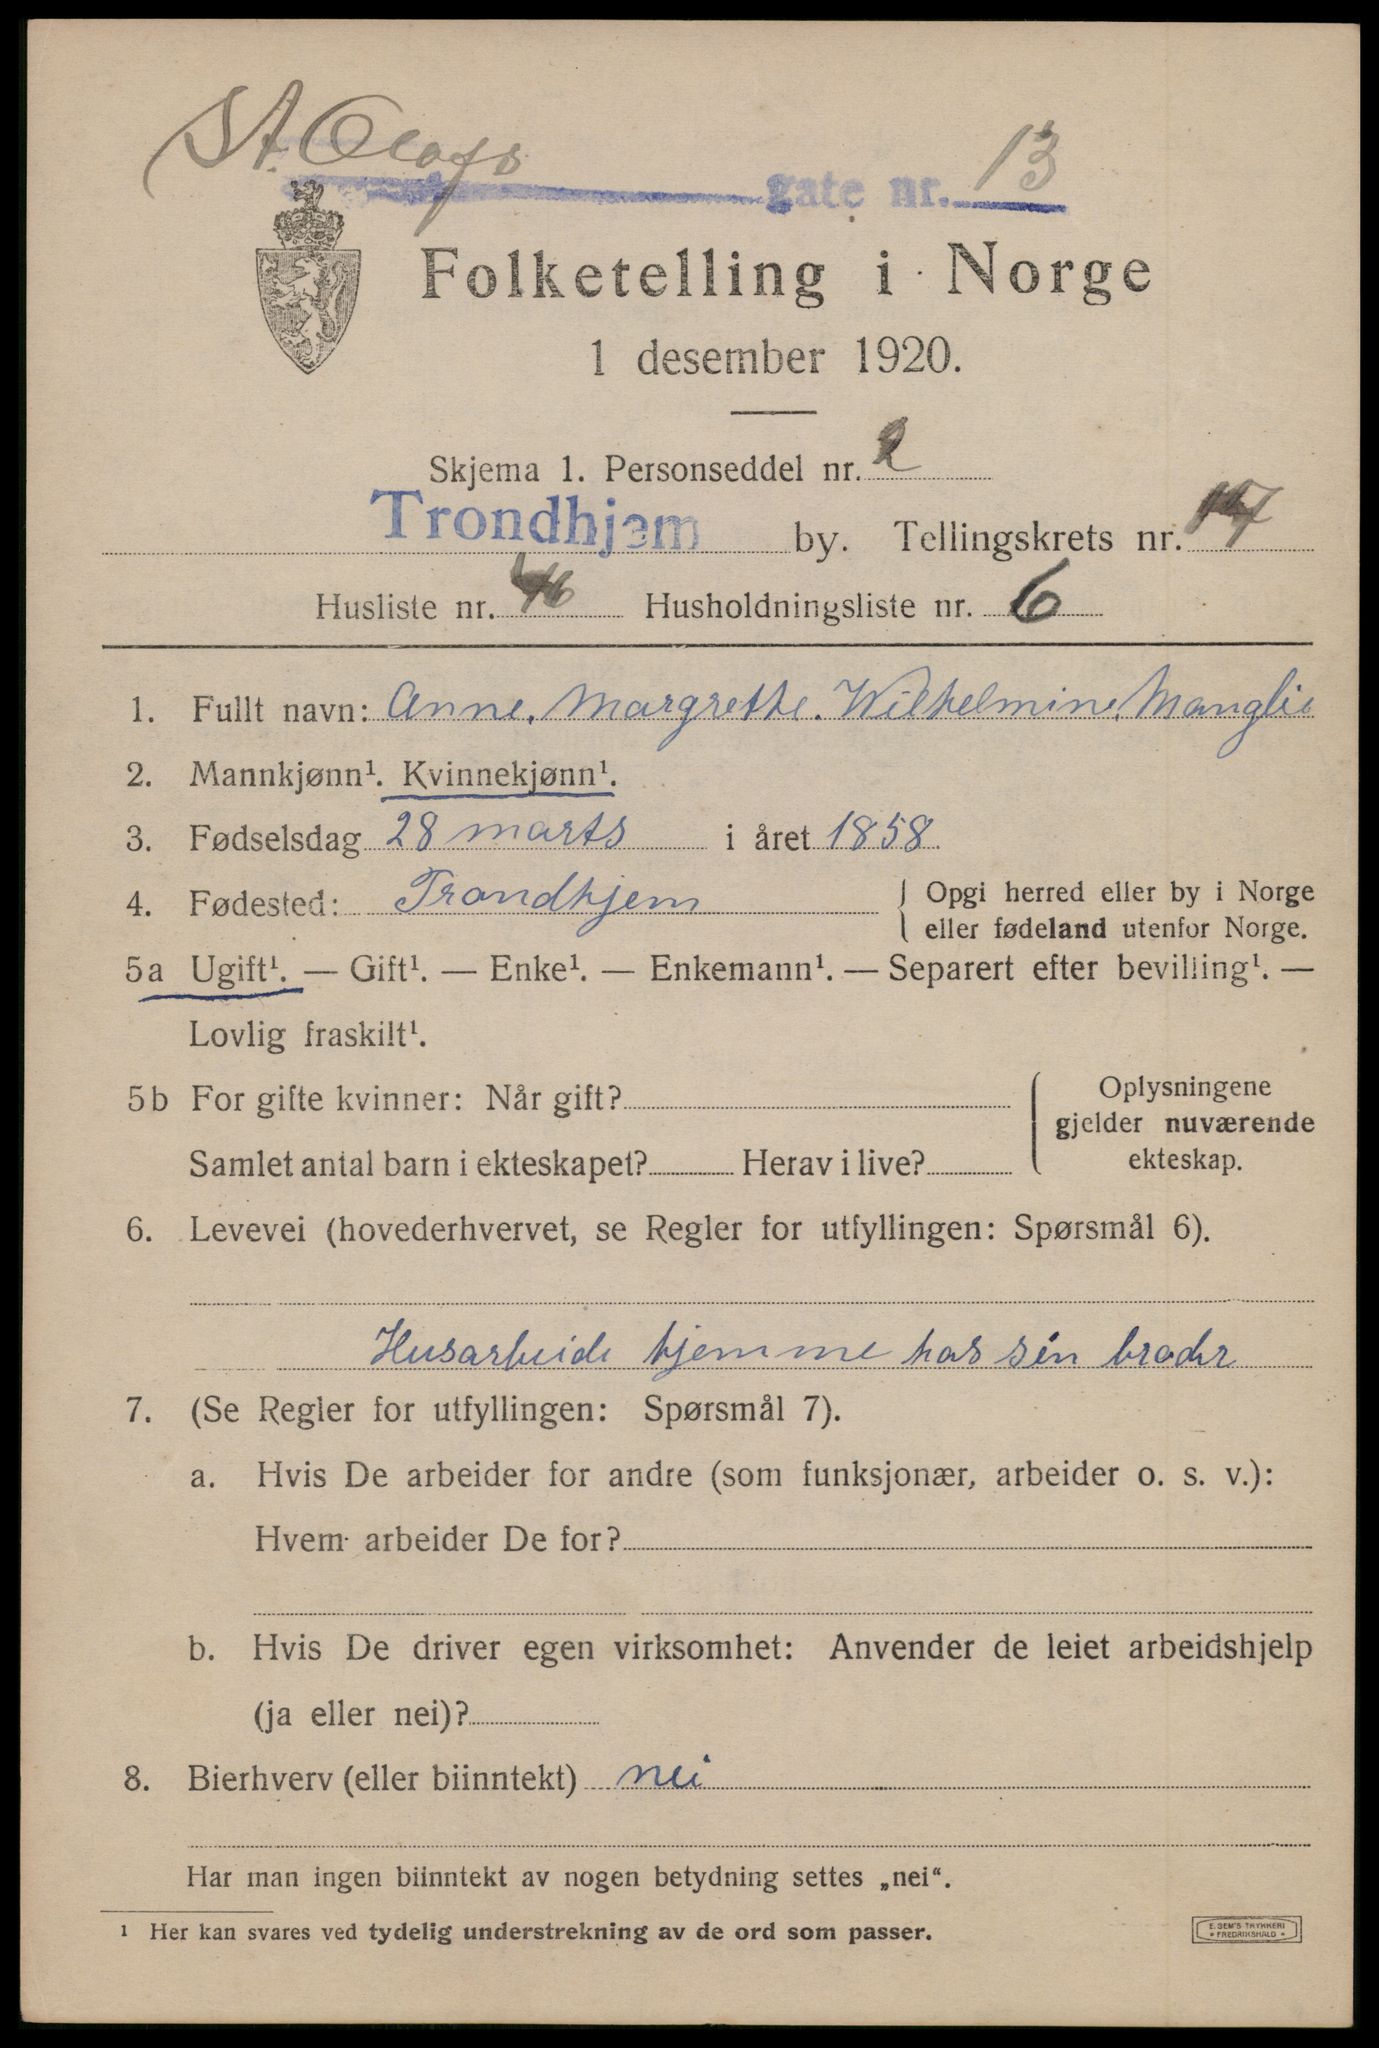 St. Olafs gate nr. 13
Folketelling i Norge
1 desember 1920.
Skjema 1. Personseddel nr. 2
Trondhjem by. Tellingskrets nr.
Husliste nr. Husholdningsliste nr. 6
1. Fullt navn: Anne. Margrethe. Wilhelmine. Manglie
2. Mannkjønn¹. Kvinnekjønn¹.
3. Fødselsdag 28 marts i året 1858.
4. Fødested: Trondhjem { Opgi herred eller by i Norge
eller fødeland utenfor Norge.
5a Ugift¹. — Gift¹. — Enke¹. — Enkemann¹. — Separert efter bevilling¹. —
Lovlig fraskilt¹.
5b For gifte kvinner: Når gift? { Oplysningene
gjelder nuværende
Samlet antal barn i ekteskapet? Herav i live? ekteskap.
6. Levevei (hovederhvervet, se Regler for utfyllingen: Spørsmål 6).
Husarbeide hjemme hos sin broder
7. (Se Regler for utfyllingen: Spørsmål 7).
a. Hvis De arbeider for andre (som funksjonær, arbeider o. s. v.):
Hvem arbeider De for?
b. Hvis De driver egen virksomhet: Anvender de leiet arbeidshjelp
(ja eller nei)?
8. Bierhverv (eller biinntekt) nei
Har man ingen biinntekt av nogen betydning settes „nei“.
¹ Her kan svares ved tydelig understrekning av de ord som passer.
E. SEM'S TRYKKERI
* FREDRIKSHALD *